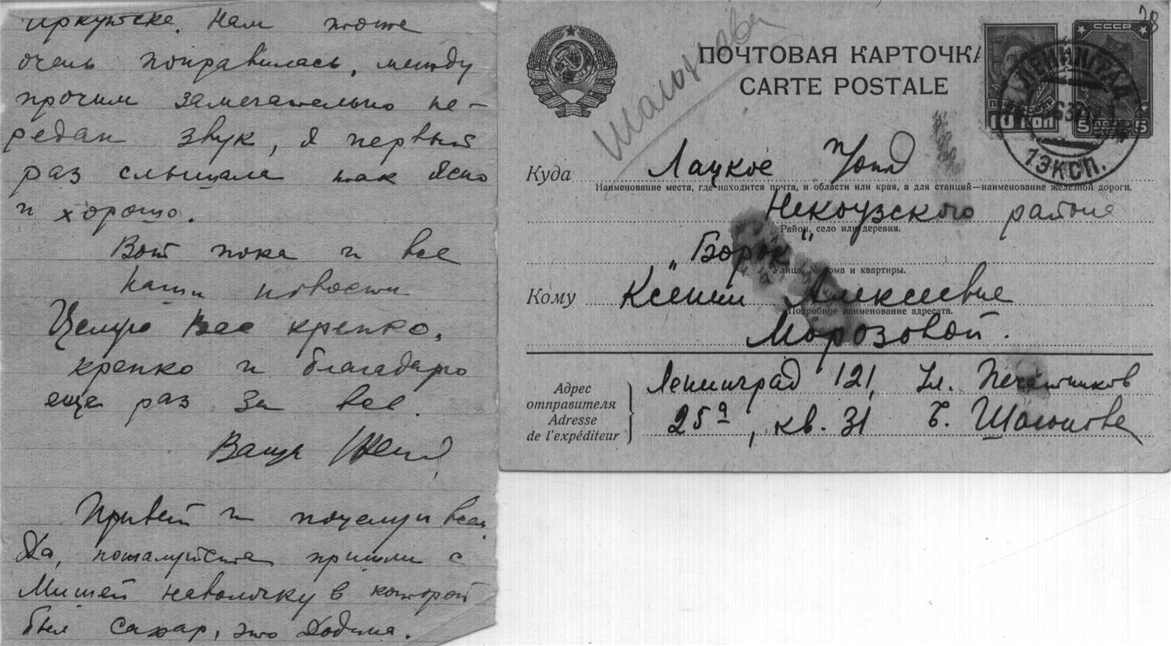 иркутске. Нам тоже
очень понравилась, между
прочим замечательно пе-
редан звук, я первый
раз слышала так ясно
и хорошо.
Вот пока и все
наши новости
Целую Вас крепко,
крепко и благодарю
еще раз за все.
Ваша Женя
Привет и поцелуи всем
Да, пожалуйста пришли с
Мишей наволочку в которой
был сахар, это Додина.
28
СССР
ПОЧТОВАЯ КАРТОЧКА
CARTE POSTALE
10 КОП
5 5
ЛЕНИНГРАД
1 ЭКСП.
Куда Лацкое
Наименование места, где находится почта, и области или края, а для станций—наименование железной дороги.
Некоузского района
Район, село или деревня.
„Борок"
и квартиры.
Кому Ксении Алексеевне
Подробное наименование адресата.
Морозовой.
Адрес
отправителя
Adresse
de l'expéditeur
Ленинград 121, ул. Печатников
25а, кв. 31 Е. Шаломова